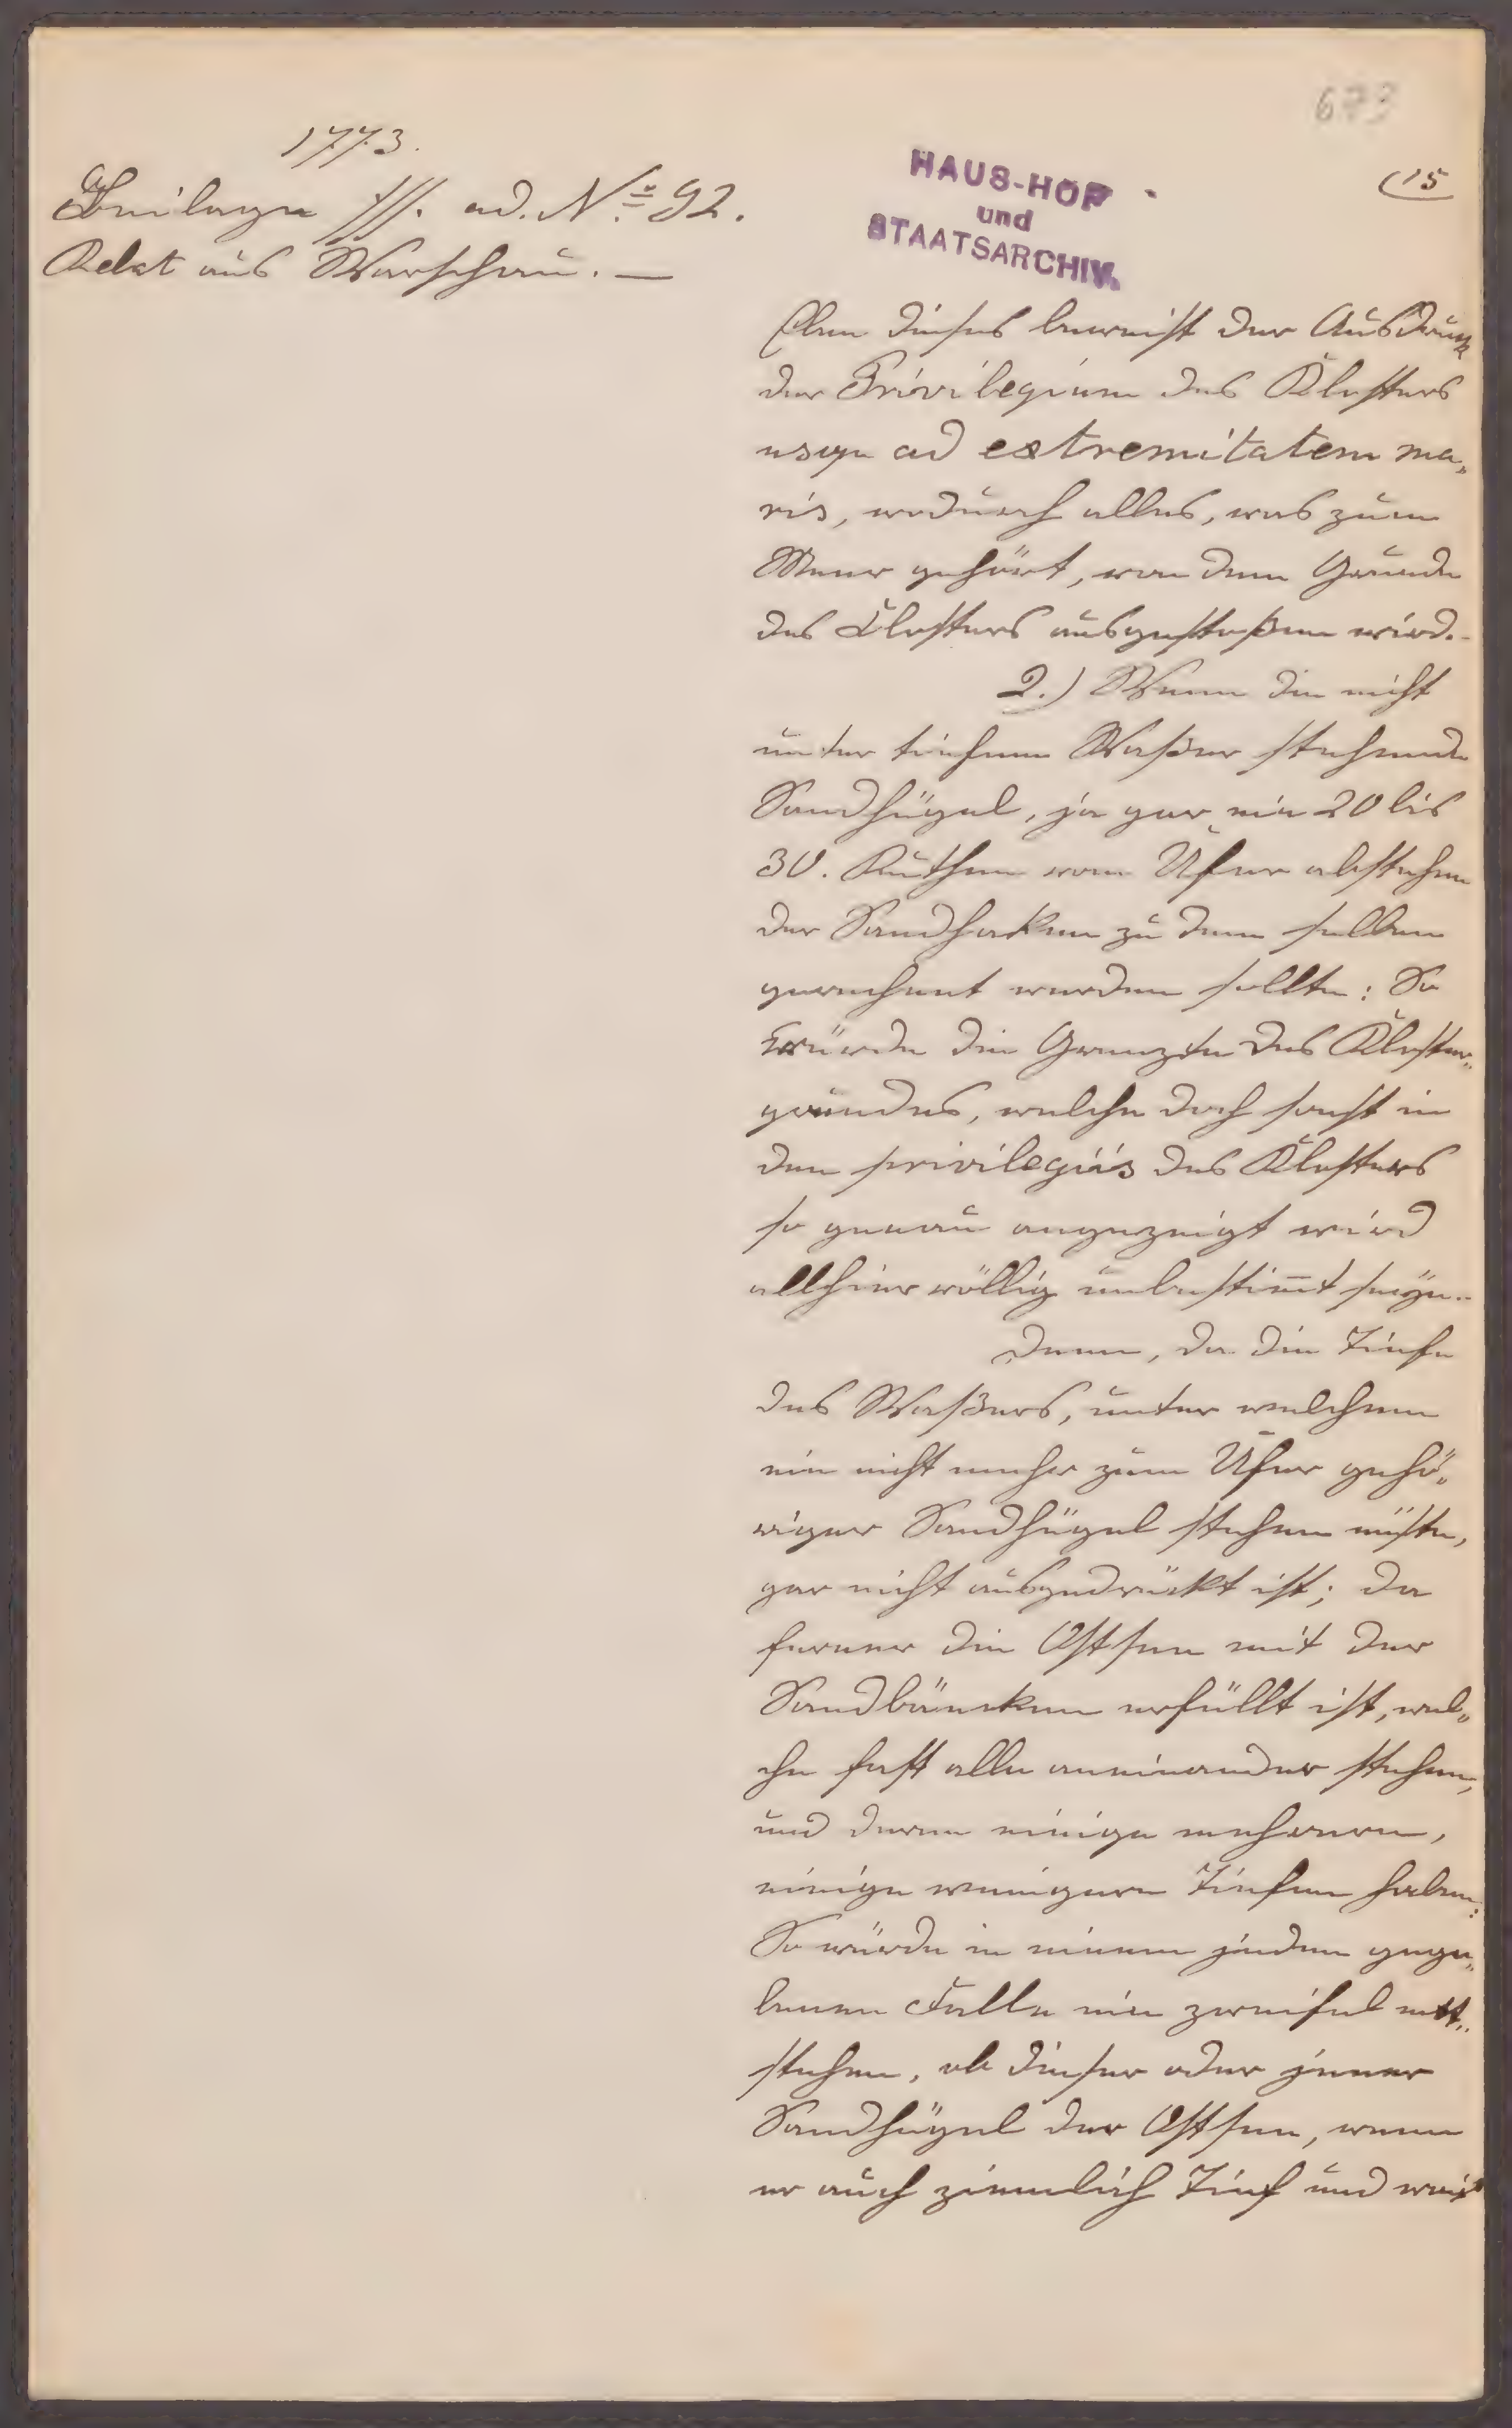 673
(15
1773.
Beilage fff. ad. No 92.
Relat aus Warschau. —
HAUS-HOF
und
STAATSARCHIV.
Eben dieses beweist der Ausdruck
der Privilegium des Klosters
usque ad extremitatem ma„
ris, wodurch alles, was zum
Meer gehört, von dem Grunde
des Klosters ausgestoßen wird.
2.) Wenn die nicht
unter tiefem Waßer stehende
Sandhügel, ja gar ein 20 bis
30. Ruthen vom Ufer abstehen
der Sandhaken zu dem selben
gerechnet werden sollte: So
würde die Grenzte des Kloster„
grundes, welche doch sonst in
den privilegiis des Klosters
so genau angezeigt wird
allhier völlig unbestimt seyn.
Denn, da die Tiefe
des Waßers, unter welchem
ein nicht mehr zum Ufer gehö„
riger Sandhügel stehen müste,
gar nicht ausgedrückt ist; da
ferner die Ostsee mit der
Sandbäncken erfüllt ist, wel„
che fast alle aneinander stehen,
und deren einige mehrere,
einige wenigere Tiefen haben:
So würde in einem jeden gege„
benen Falle ein zweifel ent„
stehen, ob dieser oder jener
Sandhügel der Ostsee, wenn
er auch ziemlich Tief und weit